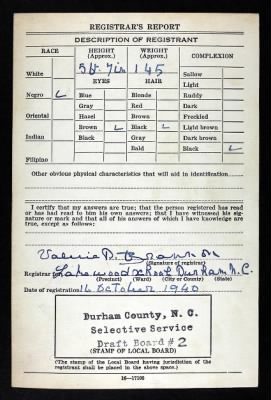 REGISTRAR'S REPORT
DESCRIPTION OF REGISTRANT
RACE HEIGHT (Approx.) WEIGHT (Approx.) COMPLEXION
White 5ft. 7in 145 Sallow
EYES HAIR Light
Negro Blue Blonde Ruddy
Gray Red Dark
Oriental Hazel Brown Freckled
Brown Black Light brown
Indian Black Gray Dark brown
Bald Black
Filipino
Other obvious physical characteristics that will aid in identification
I certify that my answers are true; that the person registered has read
or has had read to him his own answers; that I have witnessed his signa-
ture or mark and that all of his answers of which I have knowledge are
true, except as follows:
D.
(Signature of registrar)
Registrar for Lakewood School Durham N.C.
(Precinct) (Ward) (City or County) (State)
Date of registration 16 October 1940
Durham County, N. C.
Selective Service
Draft Board # 2
(STAMP OF LOCAL BOARD)
(The stamp of the Local Board having jurisdiction of the
registrant shall be placed in the above space.)
16—17105